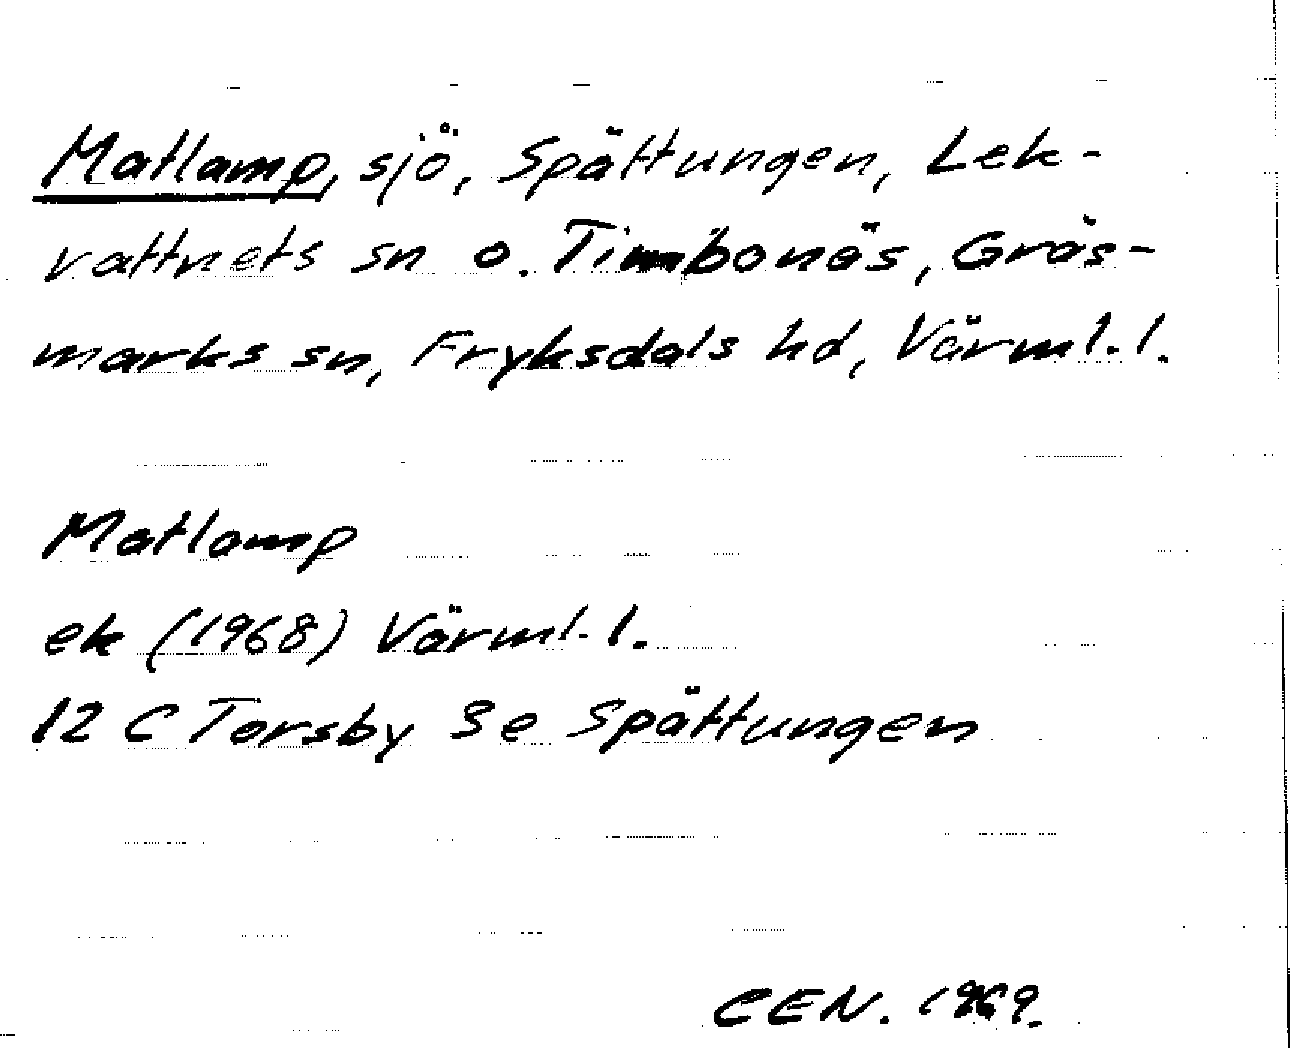 Matlamp, sjö, Spättungen, Lek-
vattnets sn o. Timbonäs, Gräs-
marks sn, Fryksdals hd, Värml.l.
Matlamp
ek (1968) Värml.l.
12 C Torsby 3e Spättungen
CEN. 1969.